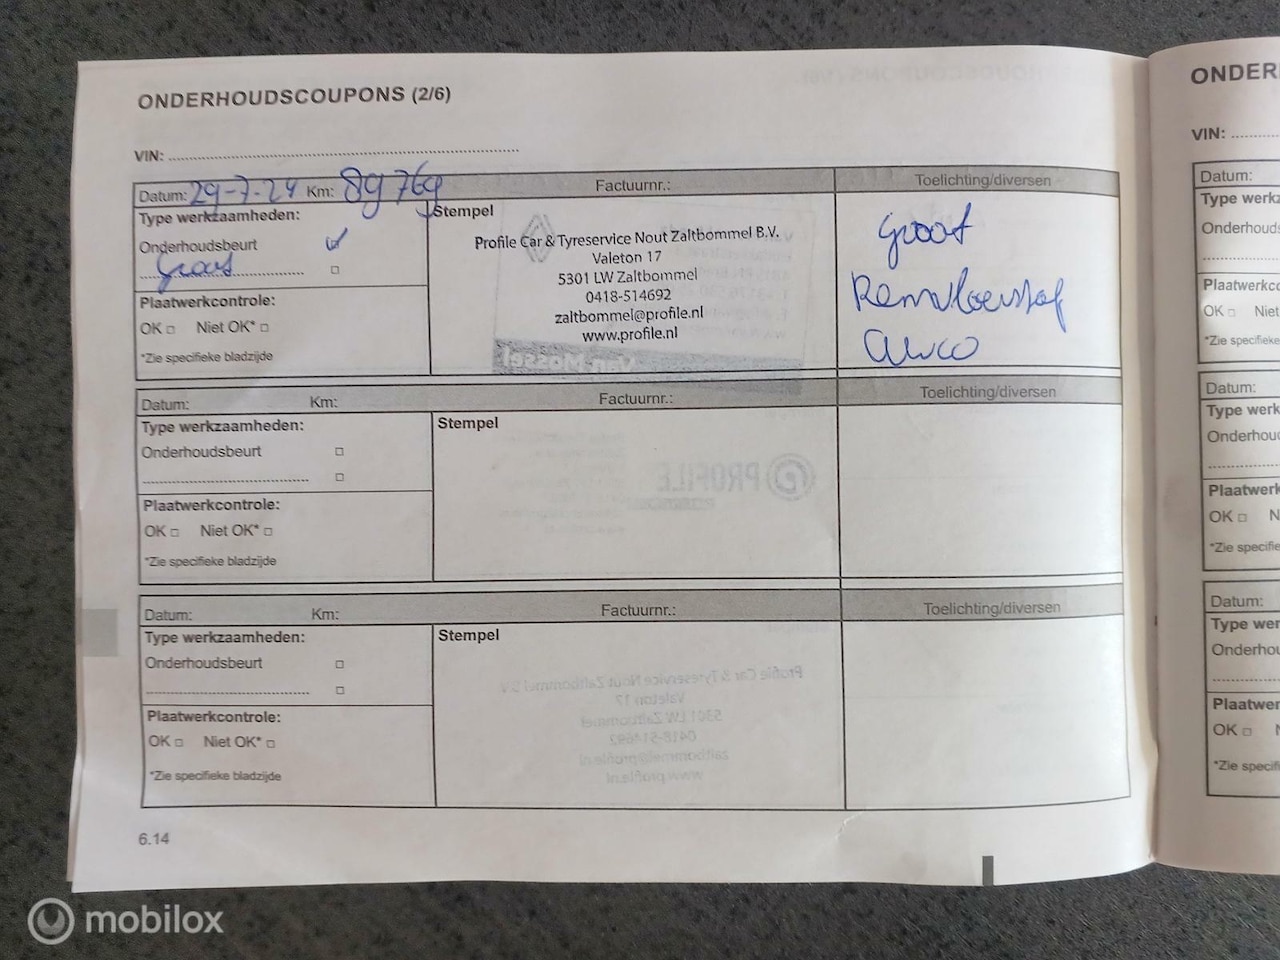 ONDERHOUDSCOUPONS (2/6)
VIN:
Datum: 29-7-24 Km: 89769 Factuurnr.: Toelichting/diversen
Type werkzaamheden:
Onderhoudsbeurt
Groot
Plaatwerkcontrole:
OK Niet OK*
*Zie specifieke bladzijde
Stempel
Profile Car & Tyreservice Nout Zaltbommel B.V.
Valeton 17
5301 LW Zaltbommel
0418-514692
zaltbommel@profile.nl
www.profile.nl
Groot
Remvloeistof
airco
Datum: Km: Factuurnr.: Toelichting/diversen
Type werkzaamheden:
Onderhoudsbeurt
Plaatwerkcontrole:
OK Niet OK*
*Zie specifieke bladzijde
Stempel
Datum: Km: Factuurnr.: Toelichting/diversen
Type werkzaamheden:
Onderhoudsbeurt
Plaatwerkcontrole:
OK Niet OK*
*Zie specifieke bladzijde
Stempel
6.14
VIN:
Datum:
OK Niet
Datum:
OK
Datum:
OK
mobilox